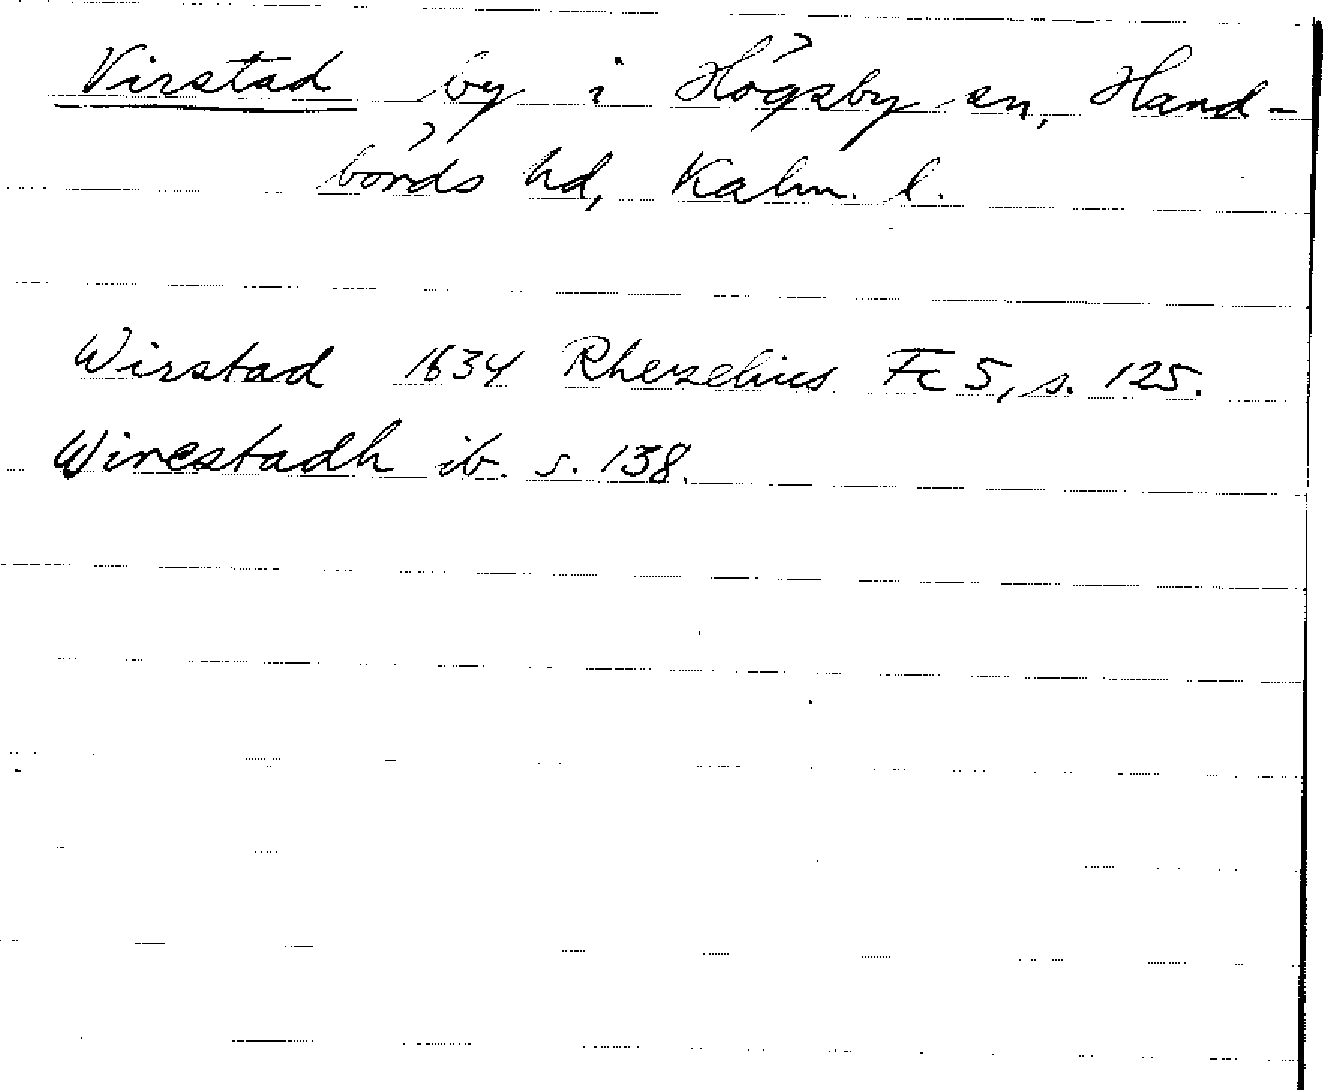 Virstad by i Högsby sn, Hand-
börds hd, Kalm. l.
Wirstad 1634 Rhezelius Fc 5, s. 125.
Wirestadh ib. s. 138.